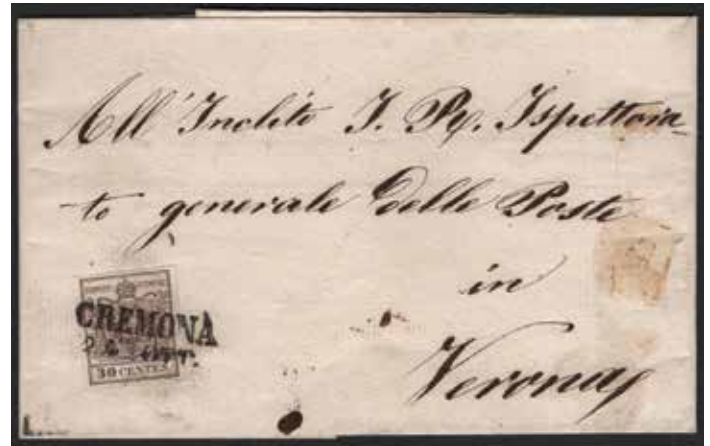 All'Inclito I. R. Ispettora-
to generale delle Poste
in
Verona
CREMONA
OTT.
30 CENTES